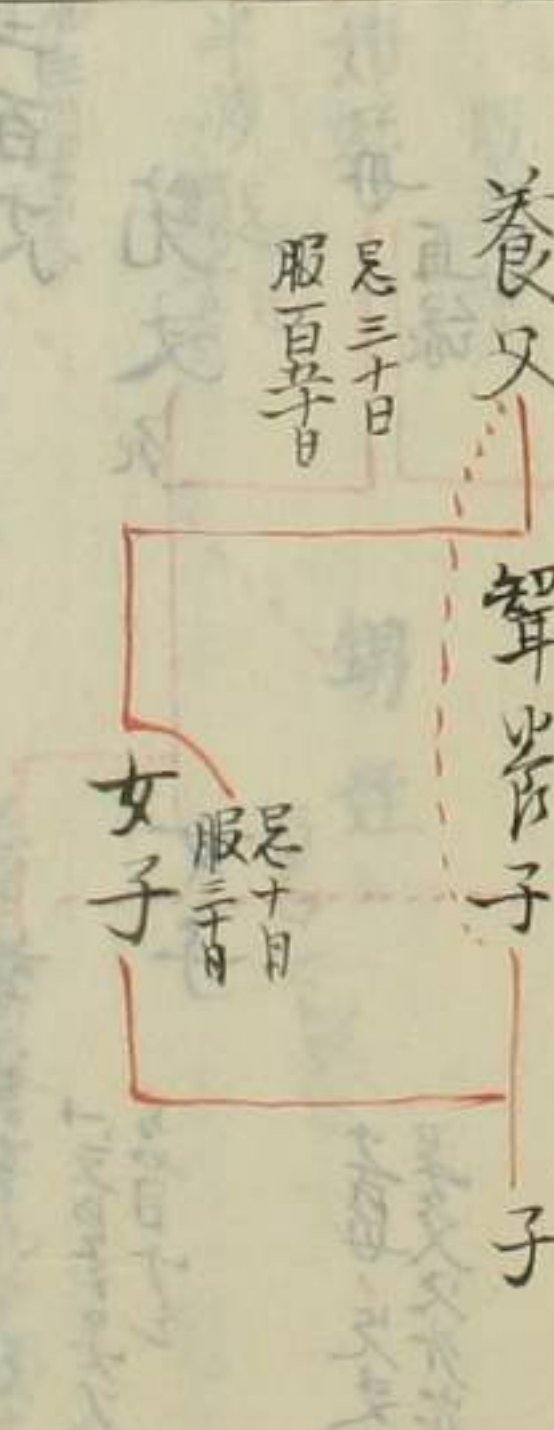 養父
忌三十日
服一百五十日
聟養子
忌十日
服三十日
女子
子